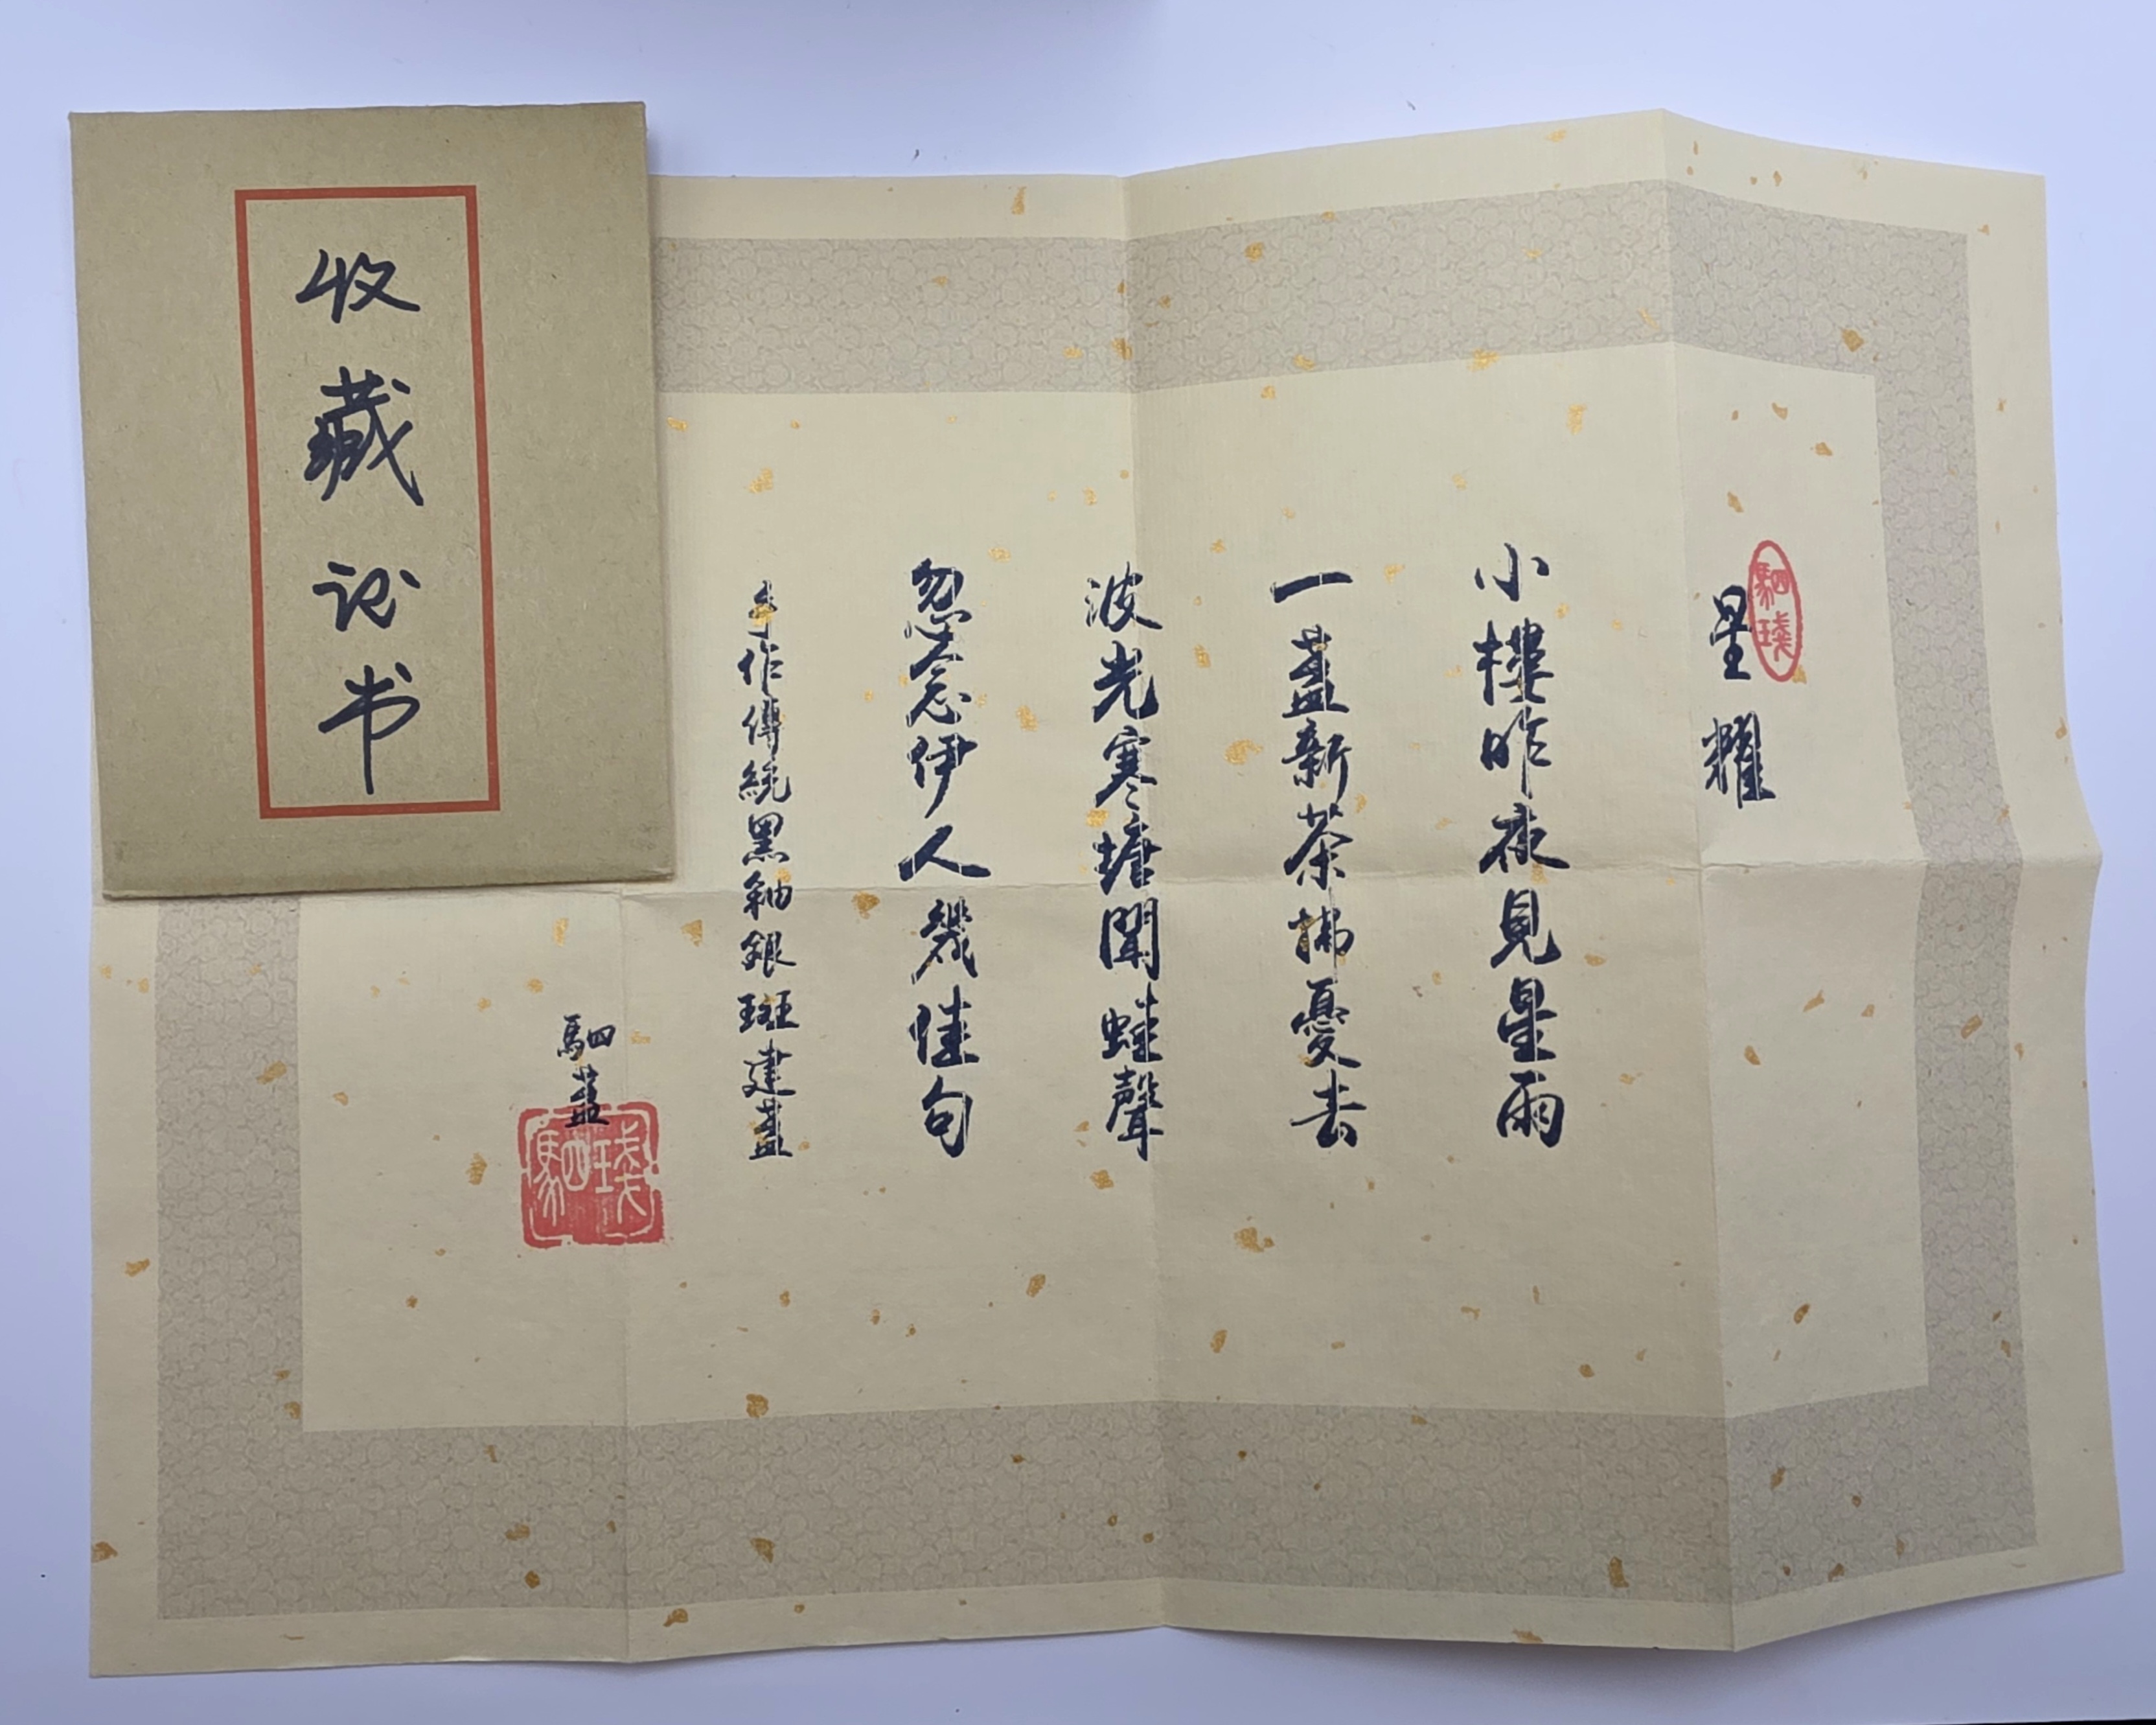 收藏证书
星耀
小樓昨夜見星雨
一盞新茶拂憂去
波光寒塘聞蛙聲
忽念伊人幾佳句
手作傳統黑釉銀斑建盞
駟盞
駟琖
駟琖